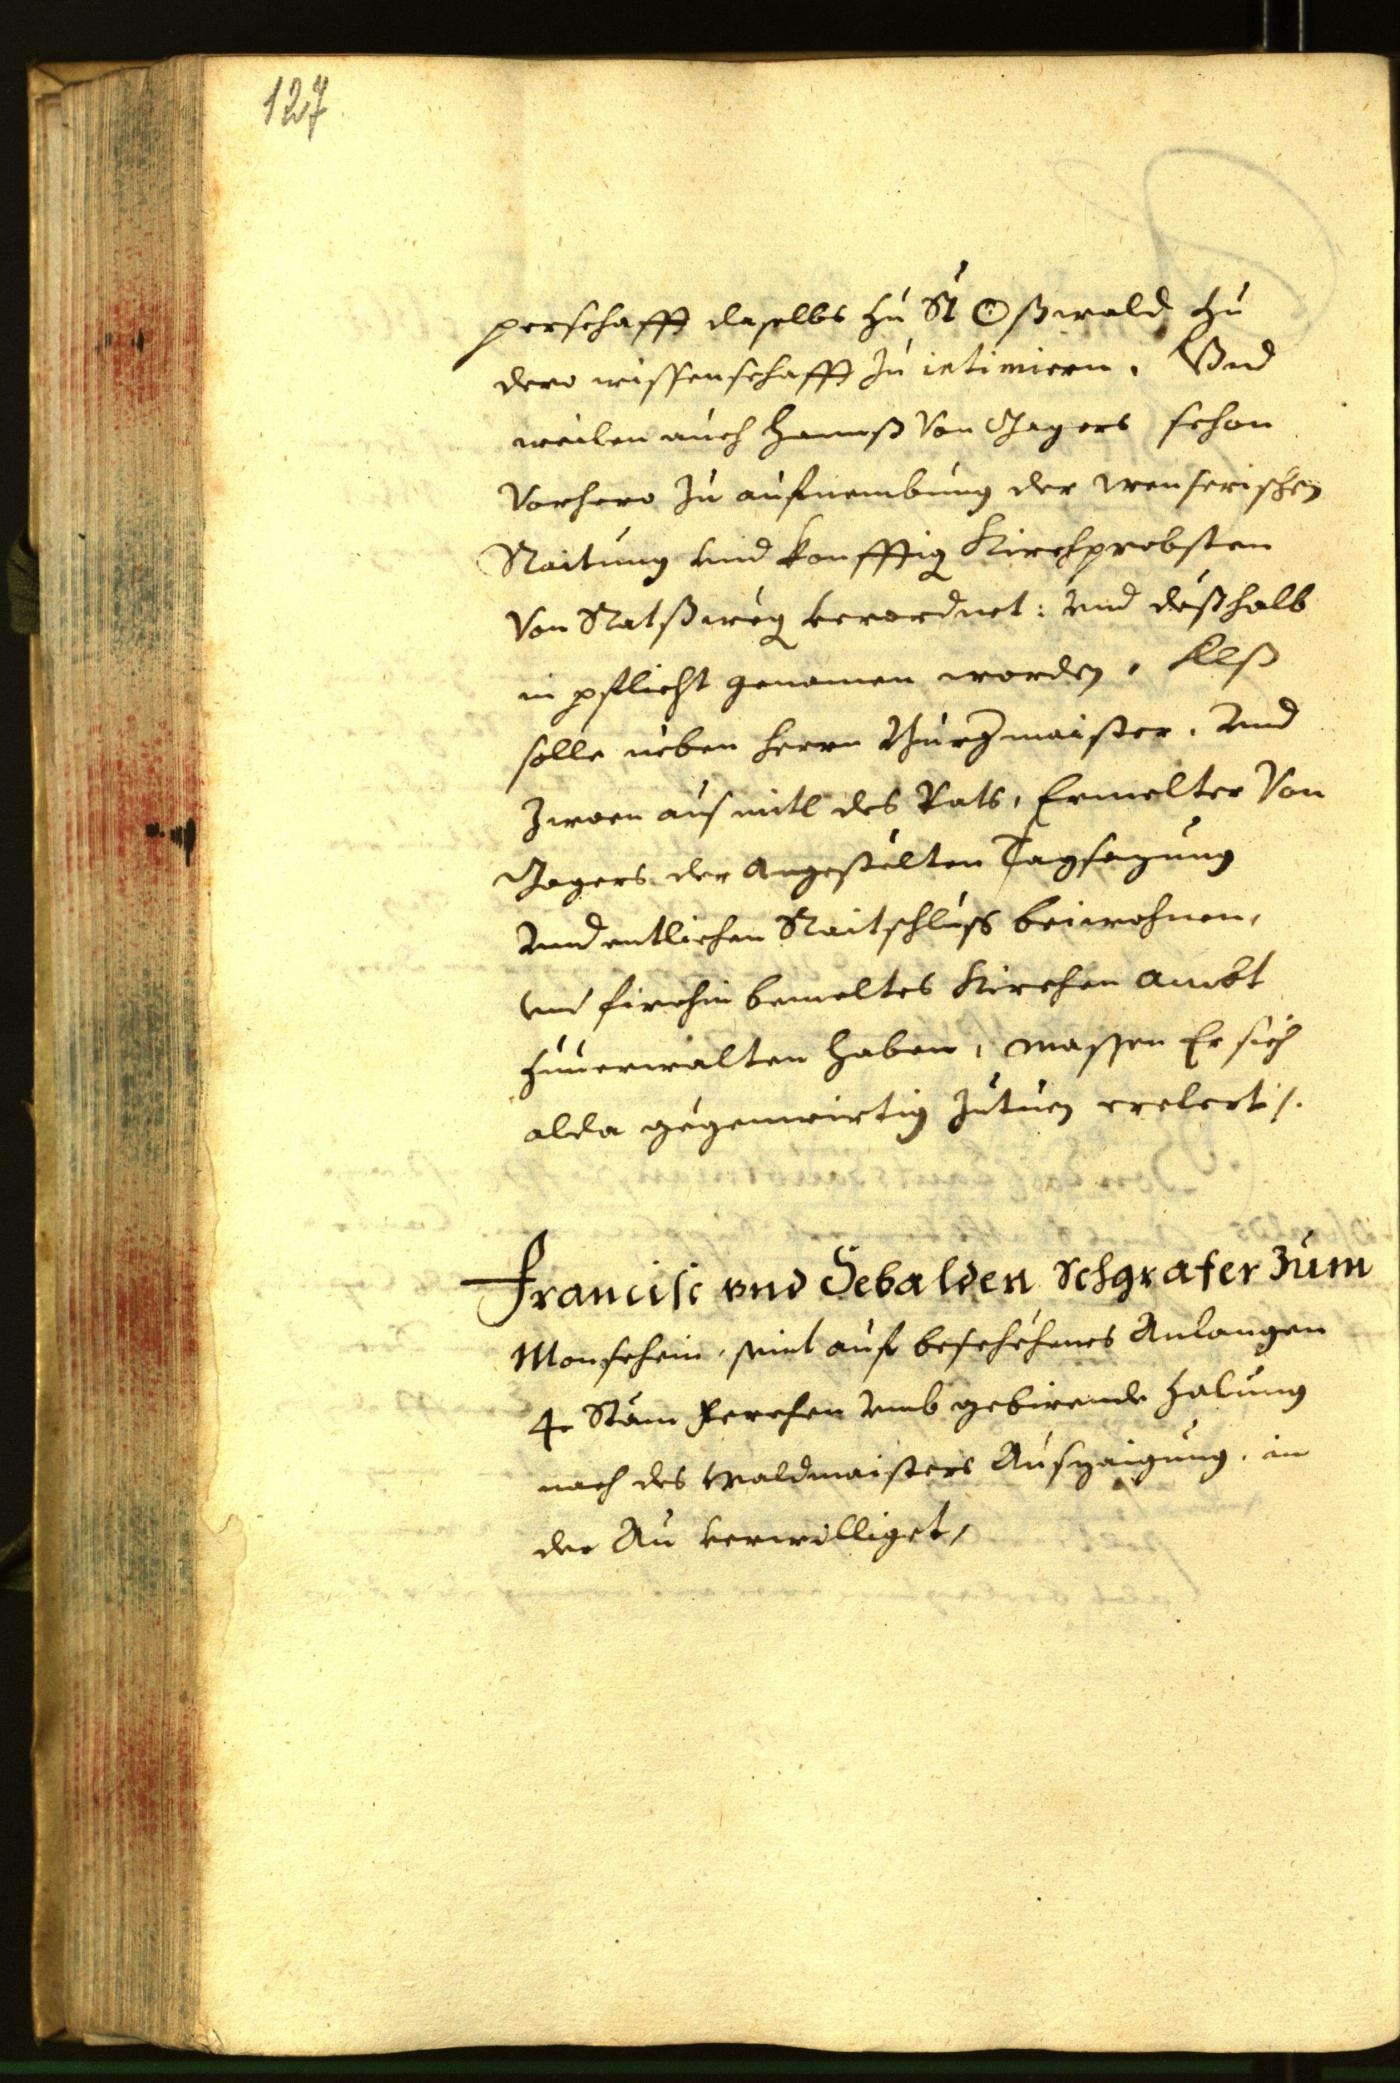 127
perschafft daselbs zu St Oßwald zu
dero wissenschafft zu intimiern. Vnd
weilen auch Hannß von Jagers schon
vorhero zu aufnembung der Wenserischen
Raitung vnd konfftig Kirchprobsten
von Ratßweg verordnet: vnd deßhalb
in pflicht genomen worden, Alß
solle neben herrn Burgmaister. vnd
zween aus mitl des Rats, Ermelter von
Jagers der angestelten Tagsazung
vnd entlichen Raitschluss beiwohnen,
vnd firohin bemeltes Kirchen Ambt
zuuerwalten haben, massen Er sich
alda gegenwirtig zutuen erclert /.
Francisc vnd Sebalden Schgrafer zum
Monschein, seint auf beschehenes Anlangen
4 Stäm Ferchen vmb gebirende Zalung
nach des Waldmaisters Auszaigung, in
der Au verwilliget,